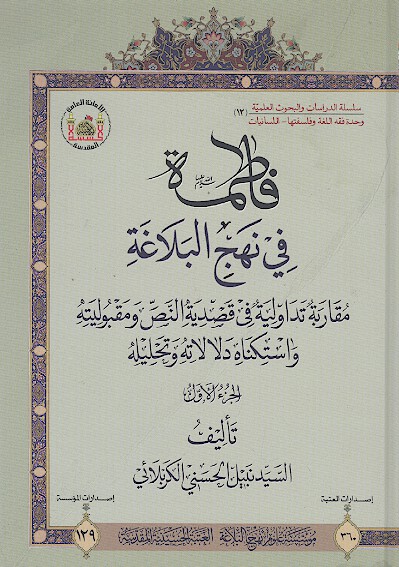 سلسلة الدراسات والبحوث العلمية (١٣)
وحدة فقه اللغة وفلسفتها - اللسانيات
الأمانة العامة
المقدسة
فاطمة
في نهج البلاغة
مقاربة تداولية في قصدية النص ومقبوليته
واستكناه دلالاته وتحليله
الجزء الأول
تأليف
السيد نبيل الحسني الكربلائي
إصدارات العتبة
إصدارات المؤسسة
٣٦٠
مؤسسة علوم نهج البلاغة العتبة الحسينية المقدسة
١٢٩